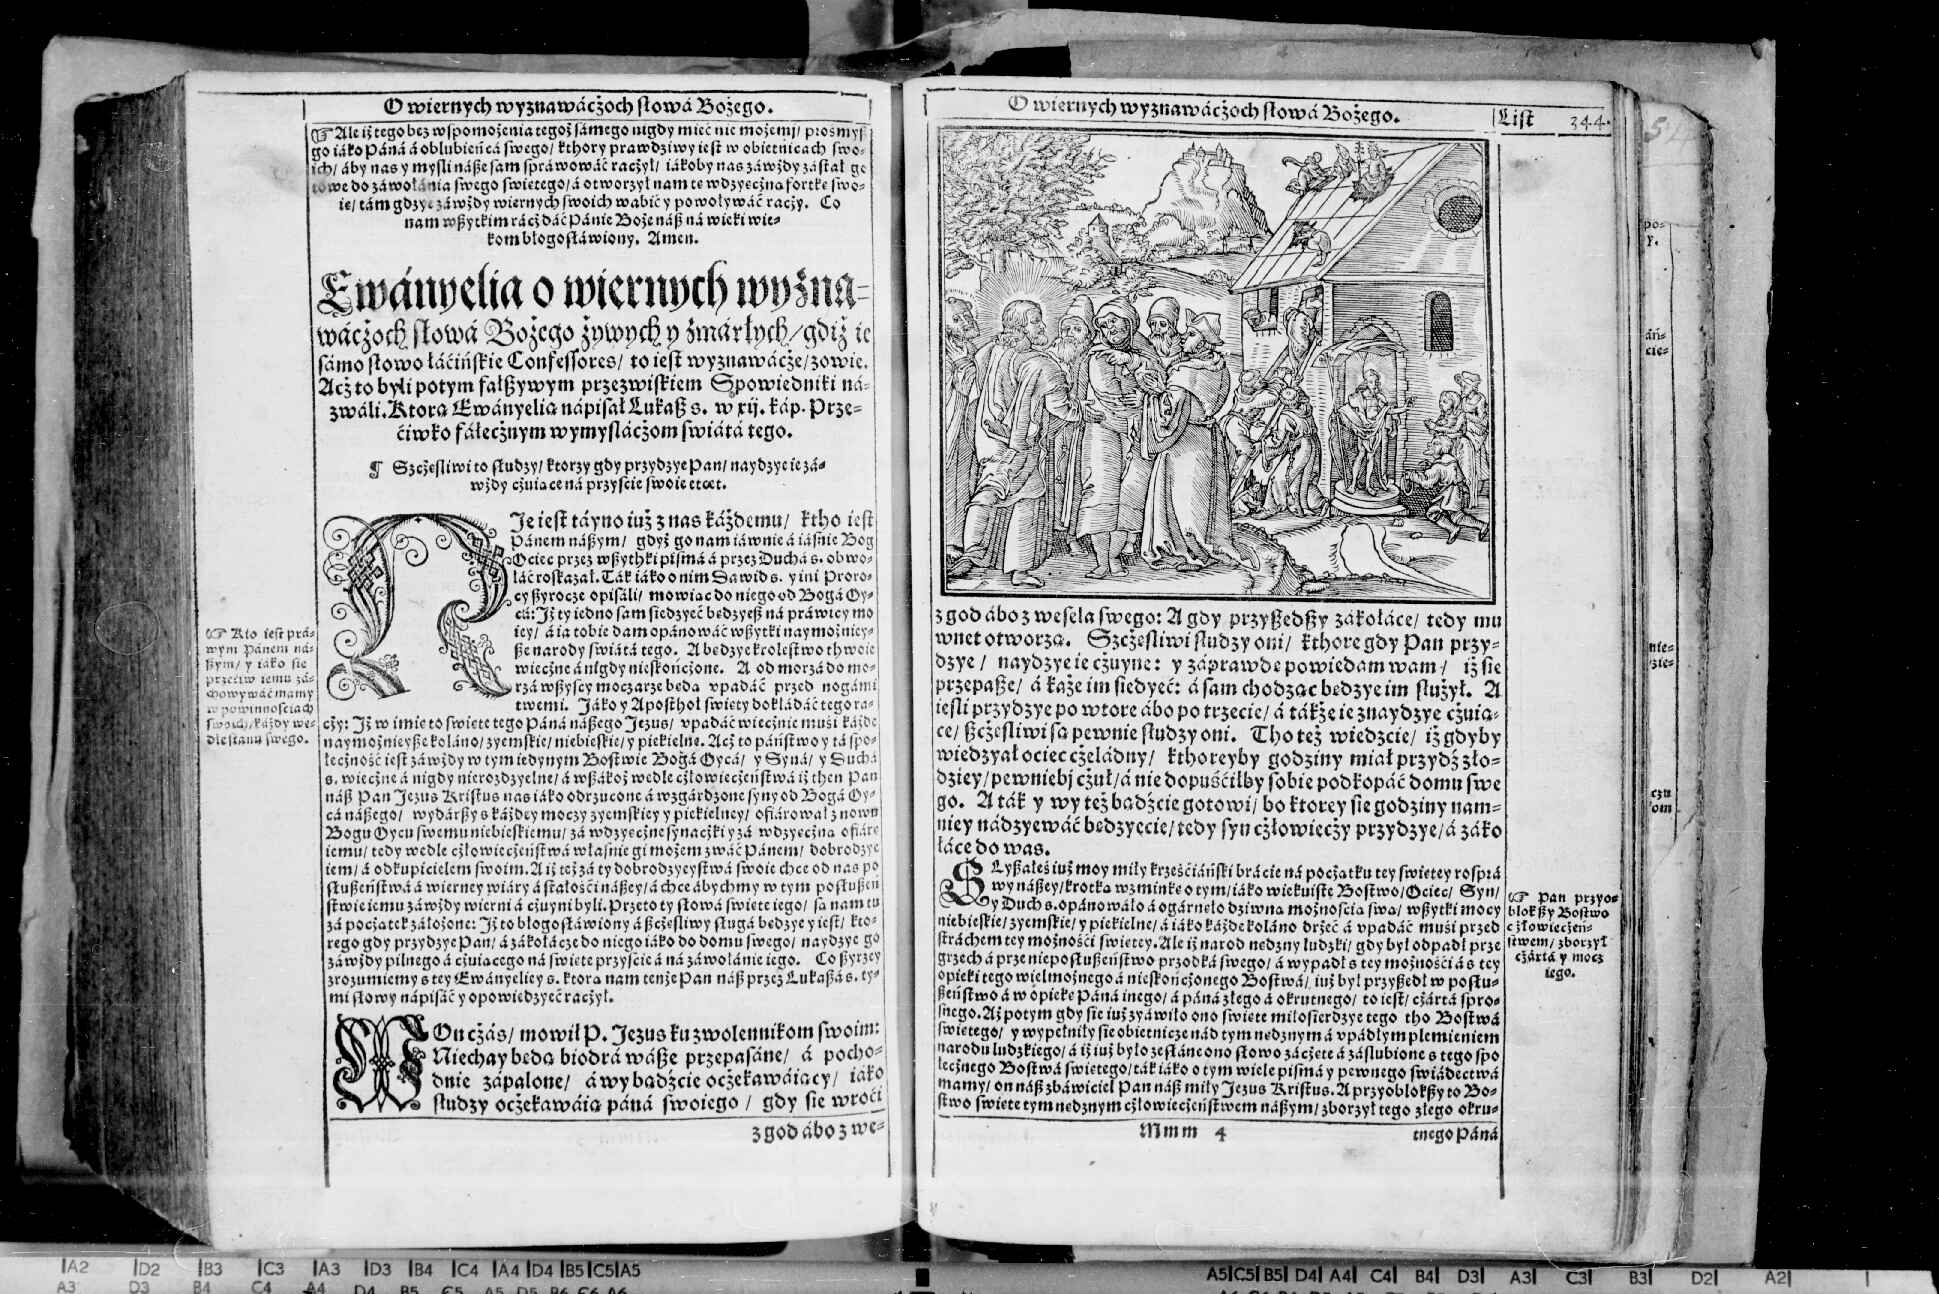 O wiernych wyznawácżoch słowá Bożego.
☞ Ale iż tego bez wspomożenia tegoż sámego nigdy mieć nie możemy/ prośmyß
go iáko Páná á oblubieńcá swego/ kthory prawdziwy iest w obietnicach swo-
ich/ áby nas y myśli náße sam spráwowáć racżył/ iákoby nas záwżdy zástał go
towe do záwołánia swego świetego/ á otworzył nam te wdzyecżną fortkę swo-
ię/ tám gdzye záwżdy wiernych swoich wabić y powoływáć racży. Co
nam wßytkim rácż dáć Pánie Boże náß ná wieki wie-
kom błogosłáwiony. Amen.
Ewányelia o wiernych wyzna-
wácżoch słowá Bożego żywych y zmárłych/ gdiż ie
sámo słowo łáćińskie Confessores/ to iest wyznawácże/ zowie.
Acż to byli potym fałßywym przezwiskiem Spowiedniki ná-
zwáli. Ktorą Ewányelią nápisał Lukaß s. w xij. káp. Prze-
ćiwko fáłecżnym wymyslácżom świátá tego.
¶ Szcżęśliwi to słudzy/ ktorzy gdy przydzye Pan/ naydzye ie zá-
wżdy cżuiące ná przyscie swoie etcet.
NJe iest táyno iuż z nas káżdemu/ ktho iest
Pánem náßym/ gdyż go nam iáwnie á iáśnie Bog
Ociec przez wßythki pismá á przez Duchá s. obwo-
łáć roskazał. Ták iáko o nim Dawid s. y ini Proro-
cy ßyrocże opisáli/ mowiąc do niego od Bogá Oy-
cá: Jż ty iedno sam siedzyeć będzyeß ná práwicy mo
iey/ á ia tobie dam opánowáć wßytki naymożniey-
ße narody świátá tego. A będzye krolestwo thwoie
wiecżne á nigdy nieskońcżone. A od morzá do mo-
rzá wßyscy mocarze będą vpadáć przed nogámi
twemi. Jáko y Aposthoł święty dokłádáć tego ra-
cży: Jż w imię to święte tego Páná náßego Jezus/ vpadáć wiecżnie muśi káżde
naymożnieyße koláno/ zyemskie/ niebieskie/ y piekielne. Acż to páństwo y tá spo-
łecżność iest záwżdy w tym iedynym Bostwie Bogá Oycá/ y Syná/ y Duchá
s. wiecżne á nigdy nierozdzyelne/ á wßákoż wedle cżłowiecżeństwá iż then Pan
náß Pan Jezus Kristus nas iáko odrzucone á wzgárdzone syny od Bogá Oy-
cá náßego/ wydárßy s káżdey mocy zyemskiey y piekielney/ ofiárował z nowu
Bogu Oycu swemu niebieskiemu/ zá wdzyecżne synacżki y zá wdzyecżną ofiárę
iemu/ tedy wedle cżłowiecżeństwá własnie gi możem zwáć Pánem/ dobrodzye
iem/ á odkupicielem swoim. A iż też zá ty dobrodzyeystwá swoie chce od nas po
słußeństwá á wierney wiáry á stałości náßey/ á chce ábychmy w tym posłußeń
stwie iemu záwżdy wierni á cżuyni byli. Przeto ty słowá święte iego/ są nam tu
zá pocżątek záłożone: Jż to błogosłáwiony á ßcżęśliwy sługá będzye y iest/ kto-
rego gdy przydzye Pan/ á zákołácże do niego iáko do domu swego/ naydzye go
záwżdy pilnego á cżuiącego ná święte przyscie á ná záwołánie iego. Co ßyrzey
zrozumiemy s tey Ewányeliey s. ktorą nam tenże Pan náß przez Lukaßá s. ty-
mi słowy nápisáć y opowiedzyeć racżył.
WOn cżás/ mowił P. Jezus ku zwolennikom swoim:
Niechay będą biodrá wáße przepasáne/ á pocho-
dnie zápalone/ á wy bądźcie ocżekawáiący/ iáko
słudzy ocżekawáią páná swoiego/ gdy się wroći
z god ábo z we-
☞ Kto iest prá-
wym Pánem ná-
ßym/ y iáko sie
przećiw iemu zá-
chowywáć mamy
w powinnościach
swoich/ káżdy we-
dle stanu swego.
O wiernych wyznawácżoch słowá Bożego.
List 344.
z god ábo z weselá swego: A gdy przyßedßy zákołáce/ tedy mu
wnet otworzą. Szcżęśliwi słudzy oni/ kthore gdy Pan przy-
dzye/ naydzye ie cżuyne: y záprawdę powiedam wam/ iż się
przepaße/ á każe im siedyeć: á sam chodząc będzye im służył. A
iesli przydzye po wtore ábo po trzecie/ á tákże ie znaydzye cżuią-
ce/ ßcżęśliwi są pewnie słudzy oni. Tho też wiedzcie/ iż gdyby
wiedzyał ociec cżeládny/ kthoreyby godziny miał przydź zło-
dziey/ pewnieby cżuł/ á nie dopuśćiłby sobie podkopáć domu swe
go. A ták y wy też bądźcie gotowi/ bo ktorey się godziny nam-
niey nádzyewáć będzyecie/ tedy syn cżłowiecży przydzye/ á záko
łáce do was.
SLyßałeś iuż moy miły krześćiáński brácie ná pocżątku tey świętey rosprá
wy náßey/ krotką wzminkę o tym/ iáko wiekuiste Bostwo/ Ociec/ Syn/
y Duch s. opánowáło á ogárnęło dziwną możnością swą/ wßytki mocy
niebieskie/ zyemskie/ y piekielne/ á iáko káżde koláno drżeć á vpadáć muśi przed
stráchem tey możności świętey. Ale iż narod nędzny ludzki/ gdy był odpadł prze
grzech á prze nieposłußeństwo przodká swego/ á wypadł s tey możnośći á s tey
opieki tego wielmożnego á nieskońcżonego Bostwá/ iuż był przyßedł w posłu-
ßeństwo á w opiekę Páná inego/ á páná złego á okrutnego/ to iest/ cżártá spro-
snego. Aż potym gdy się iuż zyáwiło ono święte miłosierdzye tego tho Bostwá
świętego/ y wypełniły się obietnicze nád tym nędznym á vpádłym plemieniem
narodu ludzkiego/ á iż iuż było zesłáne ono słowo zácżęte á záslubione s tego spo
łecżnego Bostwá świętego/ ták iáko o tym wiele pismá y pewnego świádectwá
mamy/ on náß zbáwiciel Pan náß miły Jezus Kristus. A przyoblokßy to Bo-
stwo święte tym nędznym cżłowiecżeństwem náßym/ zborzył tego złego okru-
Mmm 4 tnego Páná
☞ Pan przyo-
blokßy Bostwo
cżłowiecżeń-
stwem/ zborzył
cżártá y mocż
iego.